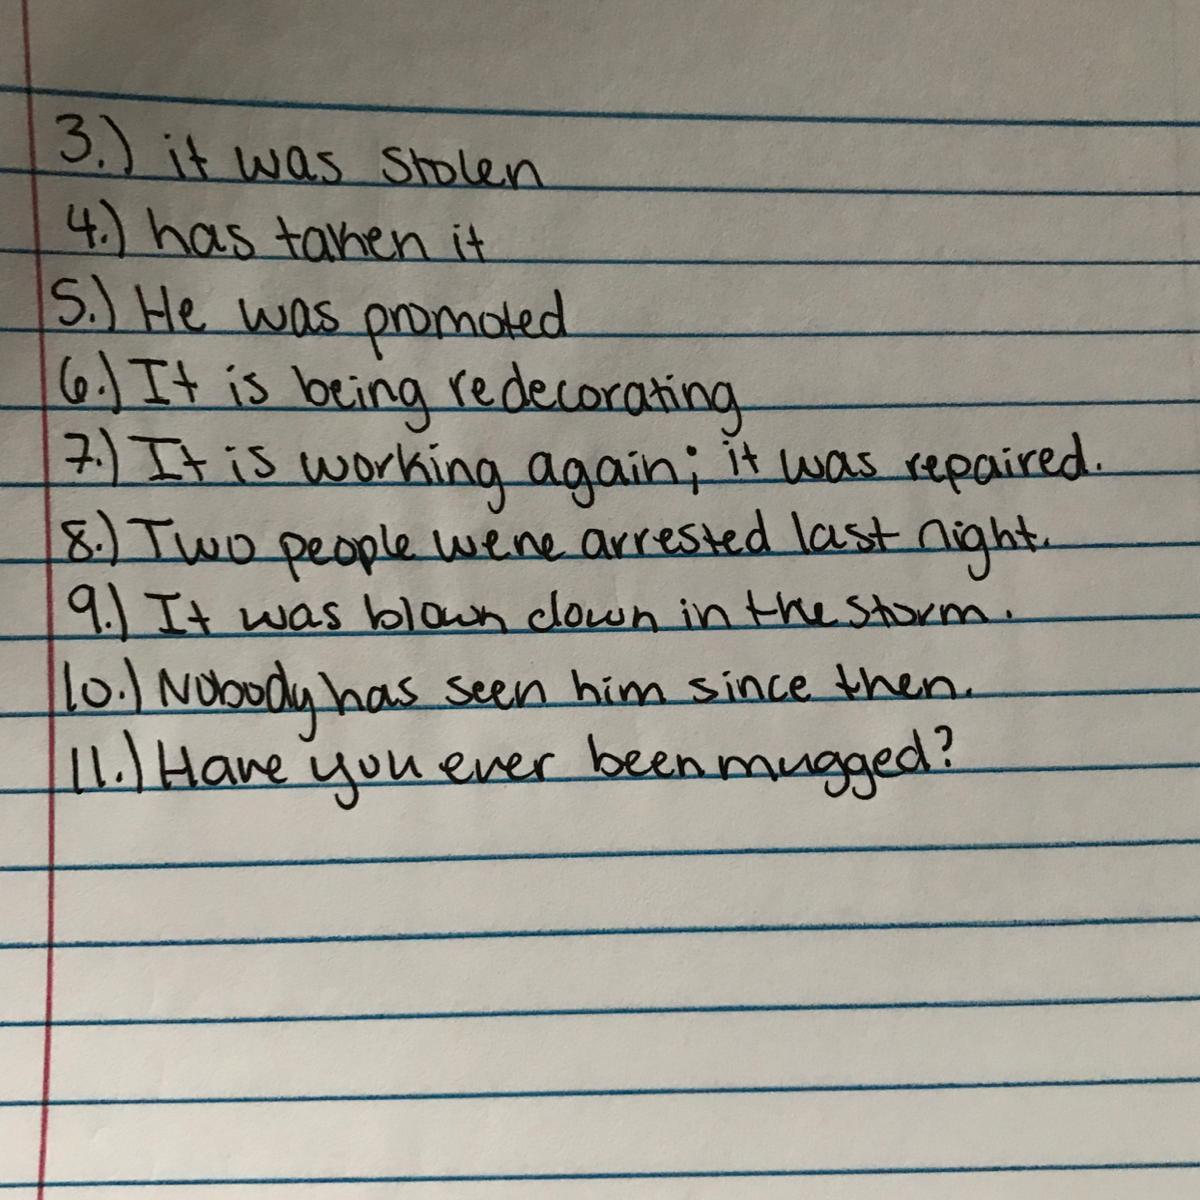 3.) it was stolen
4.) has taken it
5.) He was promoted
6.) It is being redecorating
7.) It is working again; it was repaired.
8.) Two people were arrested last night.
9.) It was blown down in the storm.
10.) Nobody has seen him since then.
11.) Have you ever been mugged?